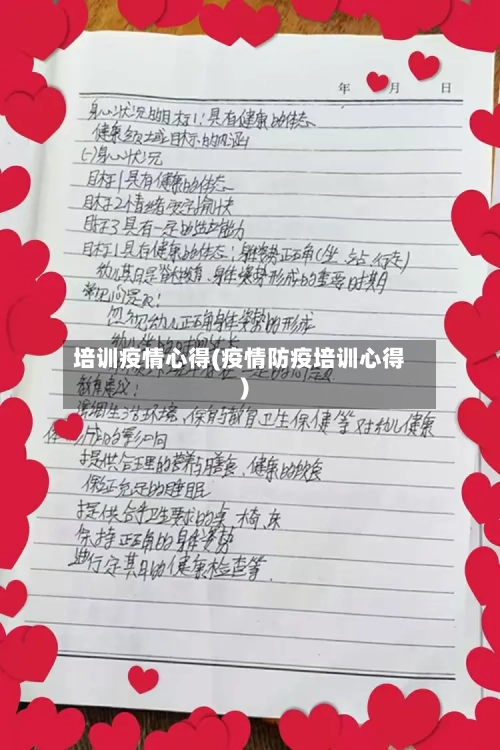 年 月 日
身心状况的目标1:具有健康的体态
健康领域目标的内涵
(一)身心状况
目标1具有健康的体态
目标2情绪安定愉快
目标3具有一定的适应能力
目标1具有健康的体态:身体姿势正确(坐、站、行走)
幼儿期是脊柱发育、身体姿势形成的重要时期
常见问题:
忽视幼儿正确身体姿势的形成
培训疫情心得(疫情防疫培训心得
)
教育建议:
生活环境、保育教育卫生保健等对幼儿健康
体态形成的影响
提供合理的营养与膳食、健康的饮食
保证充足的睡眠
提供合乎卫生要求的桌、椅、床
保持正确的身体姿势
进行定期的健康检查等.